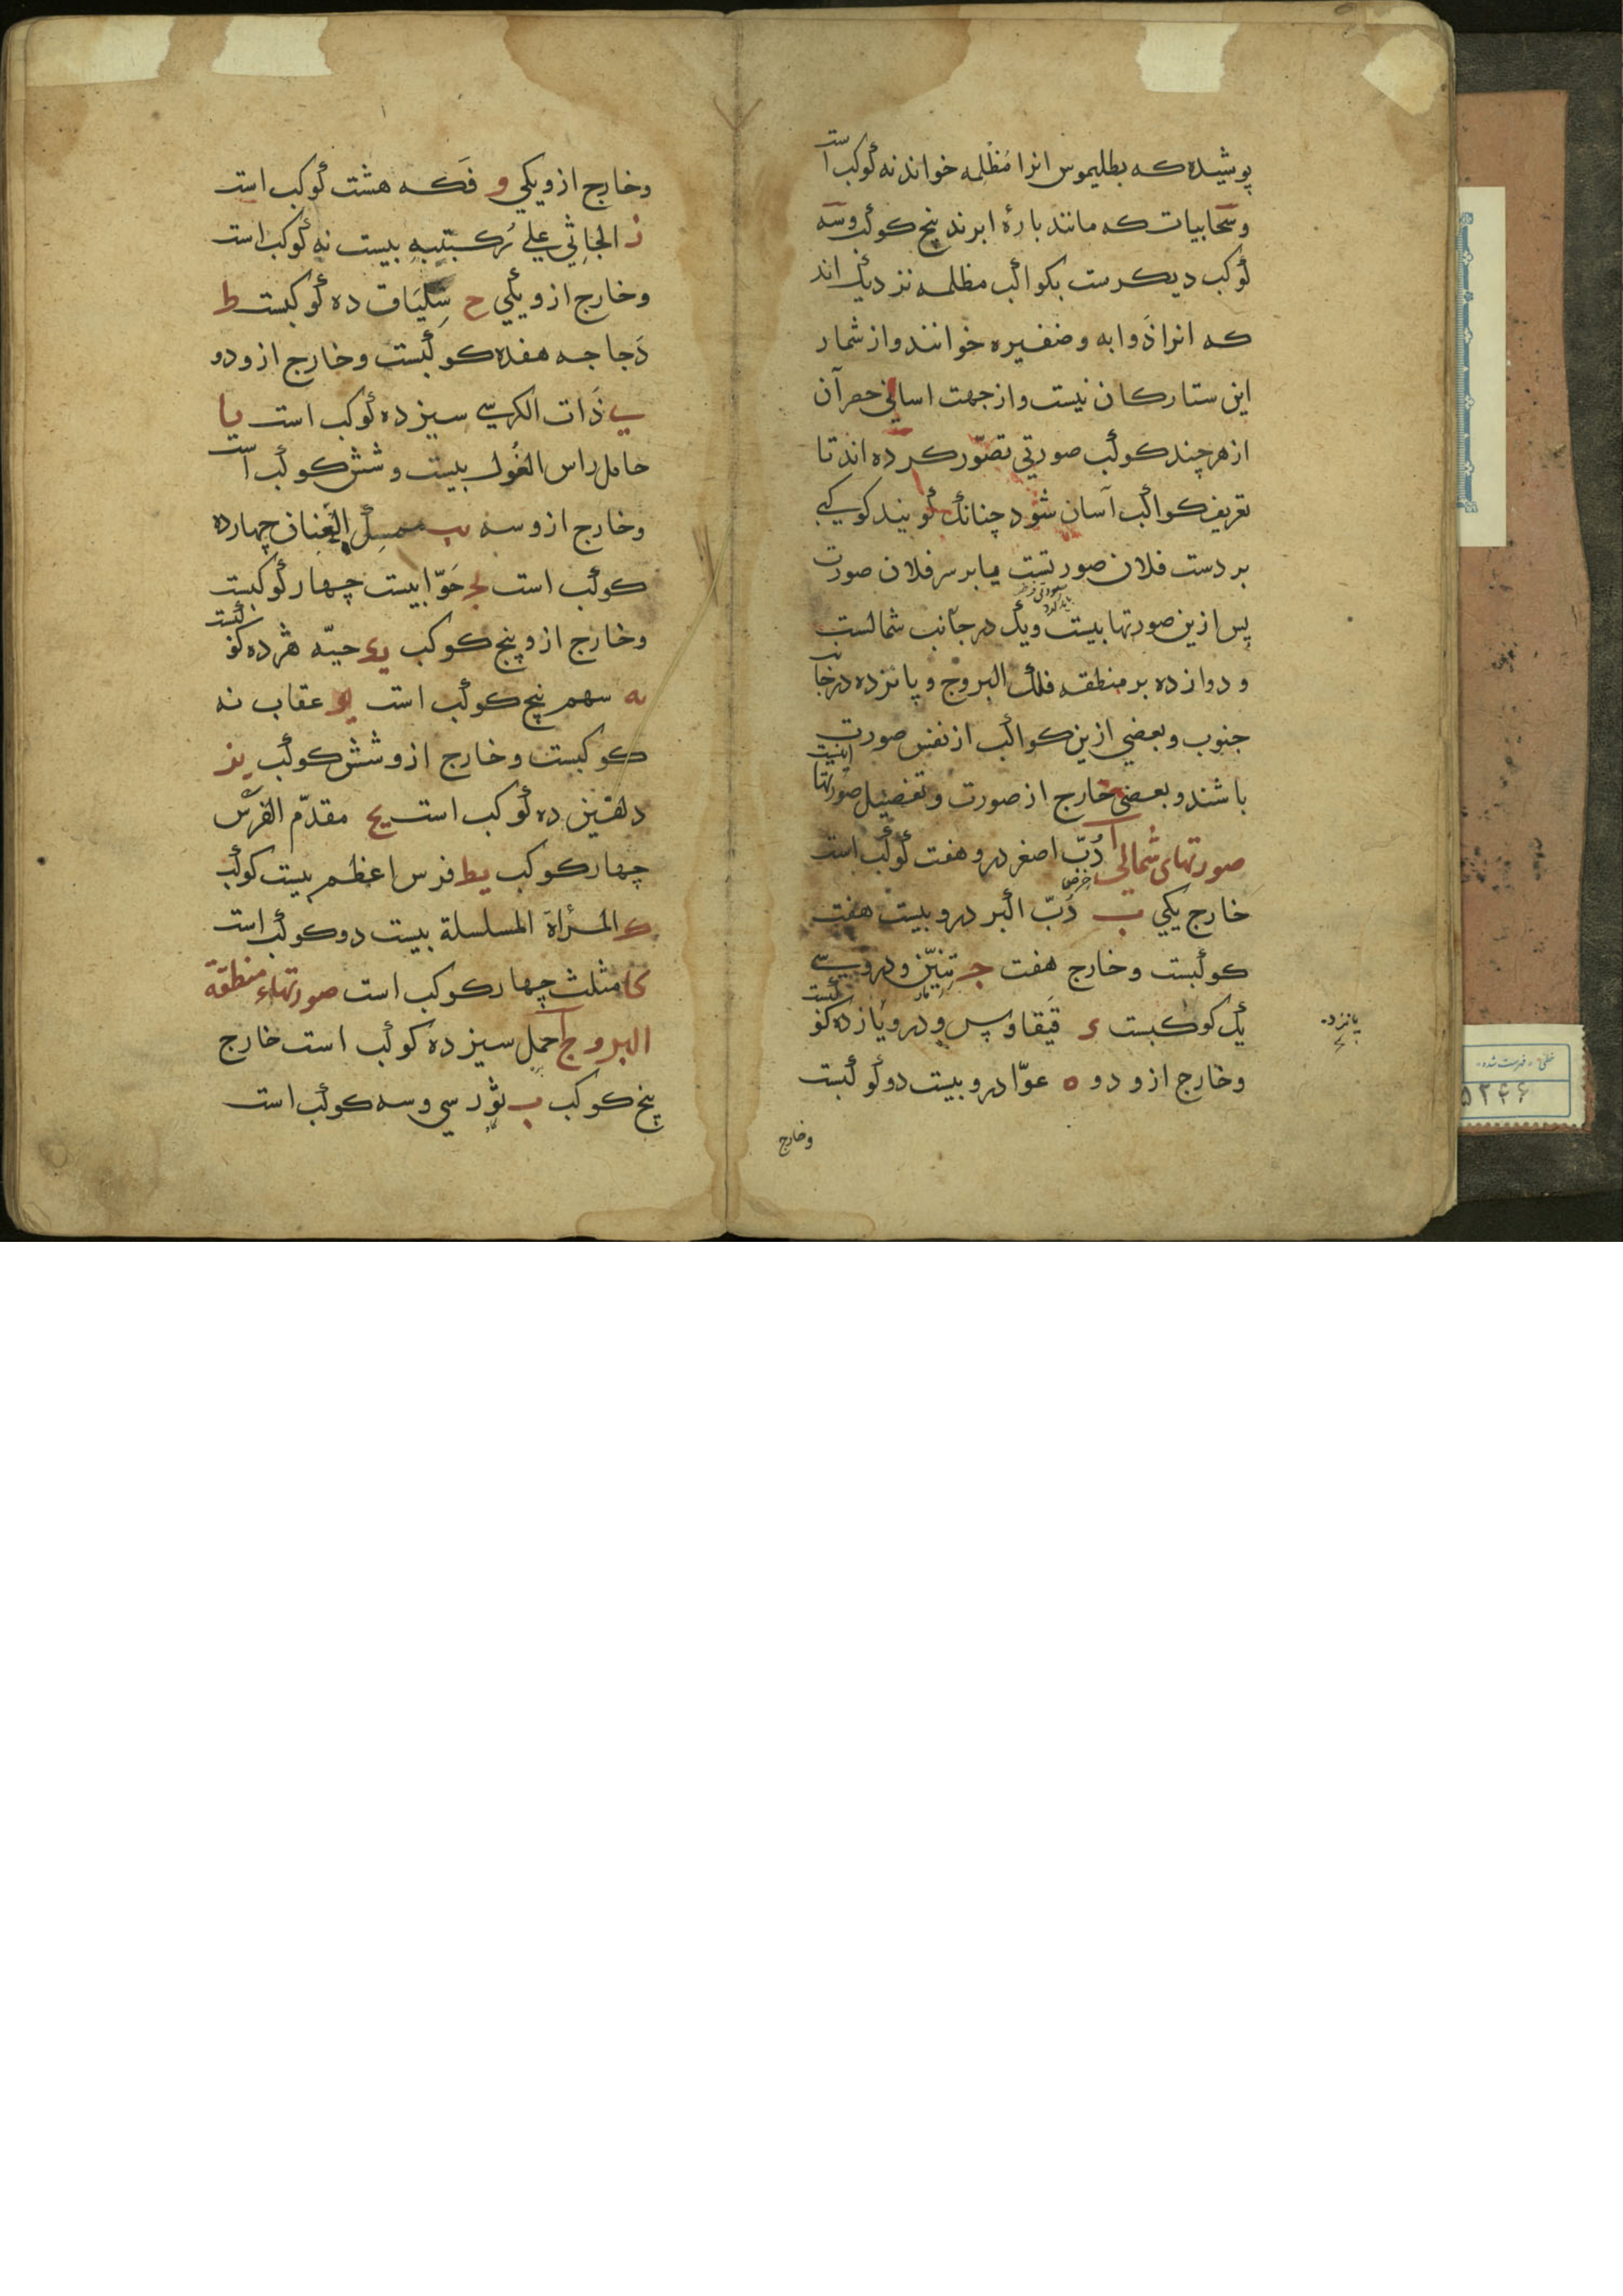 پوشیده که بطلیموس انرا مُظْلِمه خواند نه کوکب است
وسَحابیات که مانند بارۀ ابرند پنج کوکب وسَه
کوکب دیکرست بکواکب مظلمه نزدیک اند
که انرا ذَوابه وضفیره خوانند واز شمار
این ستارکان نیست واز جهت اسانی حصر آن
از هر چند کوکب صورتی تصوّر کرده اند تا
تعریف کواکب آسان شود چنانک کویند کوکبی
بر دست فلان صورتست یا بر سر فلان صورت
پس ازین صورتها بیست ویک در جانب شمالست
و دوازده بر منطقه فلک البروج و پانزده در جانب
جنوب وبعضی ازین کواکب از نفس صورت
باشند وبعضی خارج از صورت وتفصیل صورتها اینست
صورتهای شمالی ا دُبّ اصغر درو هفت کوکب است
خارج یکی ب دُبّ اکبر درو بیست هفت
کوکبست وخارج هفت ج تِنِّین ودرو سی
یک کوکبست د قَیقاوس ودرو یازده کوکبست
وخارج ازو دو ه عوّا درو بیست دو کوکبست
وخارج
پانزده
وخارج ازو یکی و فَکه هشت کوکب است
ز الجاثی علی رُکبتیه بیست نه کوکب است
وخارج ازو یکی ح سِلیَاق ده کوکبست ط
دَجاجه هفده کوکبست وخارج ازو دو
ی ذَات الکرسی سیزده کوکب است یا
حامل راس الغُول بیست وشش کوکب است
وخارج ازو سه یب ممسِک العِنان چهارده
کوکب است یج حَوّا بیست چهار کوکبست
وخارج ازو پنج کوکب ید حیّه هژده کوکبست
یه سهم پنج کوکب است یو عقاب نه
کوکبست وخارج ازو شش کوکب یز
دلفین ده کوکب است یح مقدّم الفرس
چهار کوکب یط فرس اعظم بیست کوکب
ک المرأة المسلسلة بیست دو کوکب است
کا مثلث چهار کوکب است صورتهاء منطقة
البروج ا حمل سیزده کوکب است خارج
پنج کوکب ب ثور سی وسه کوکب است
خطی - فهرست شده
۵۲۴۶